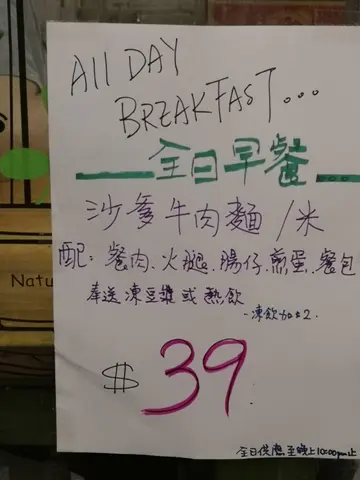 All DAY
BREAKFAST...
全日早餐...
沙爹牛肉麵/米
配:餐肉、火腿、腸仔、煎蛋、餐包
奉送凍豆漿或熱飲
-凍飲加$2.
$39
全日供應至晚上10:00pm止
Natu